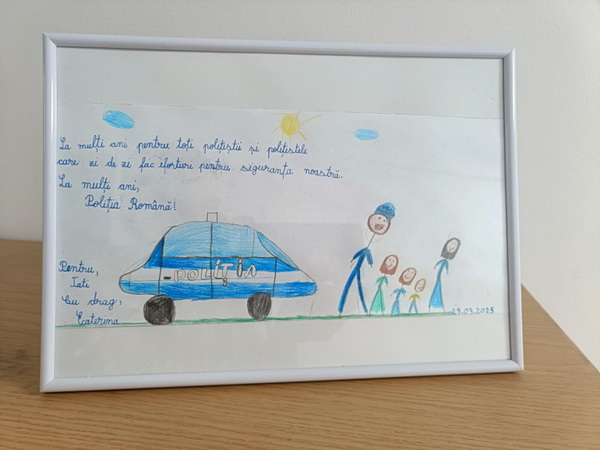 La mulți ani pentru toți polițiștii și polițistele
care zi de zi fac eforturi pentru siguranța noastră.
La mulți ani,
Poliția Română!
POLIȚIA
Pentru,
Tati
Cu drag,
Ecaterina
25.03.2025